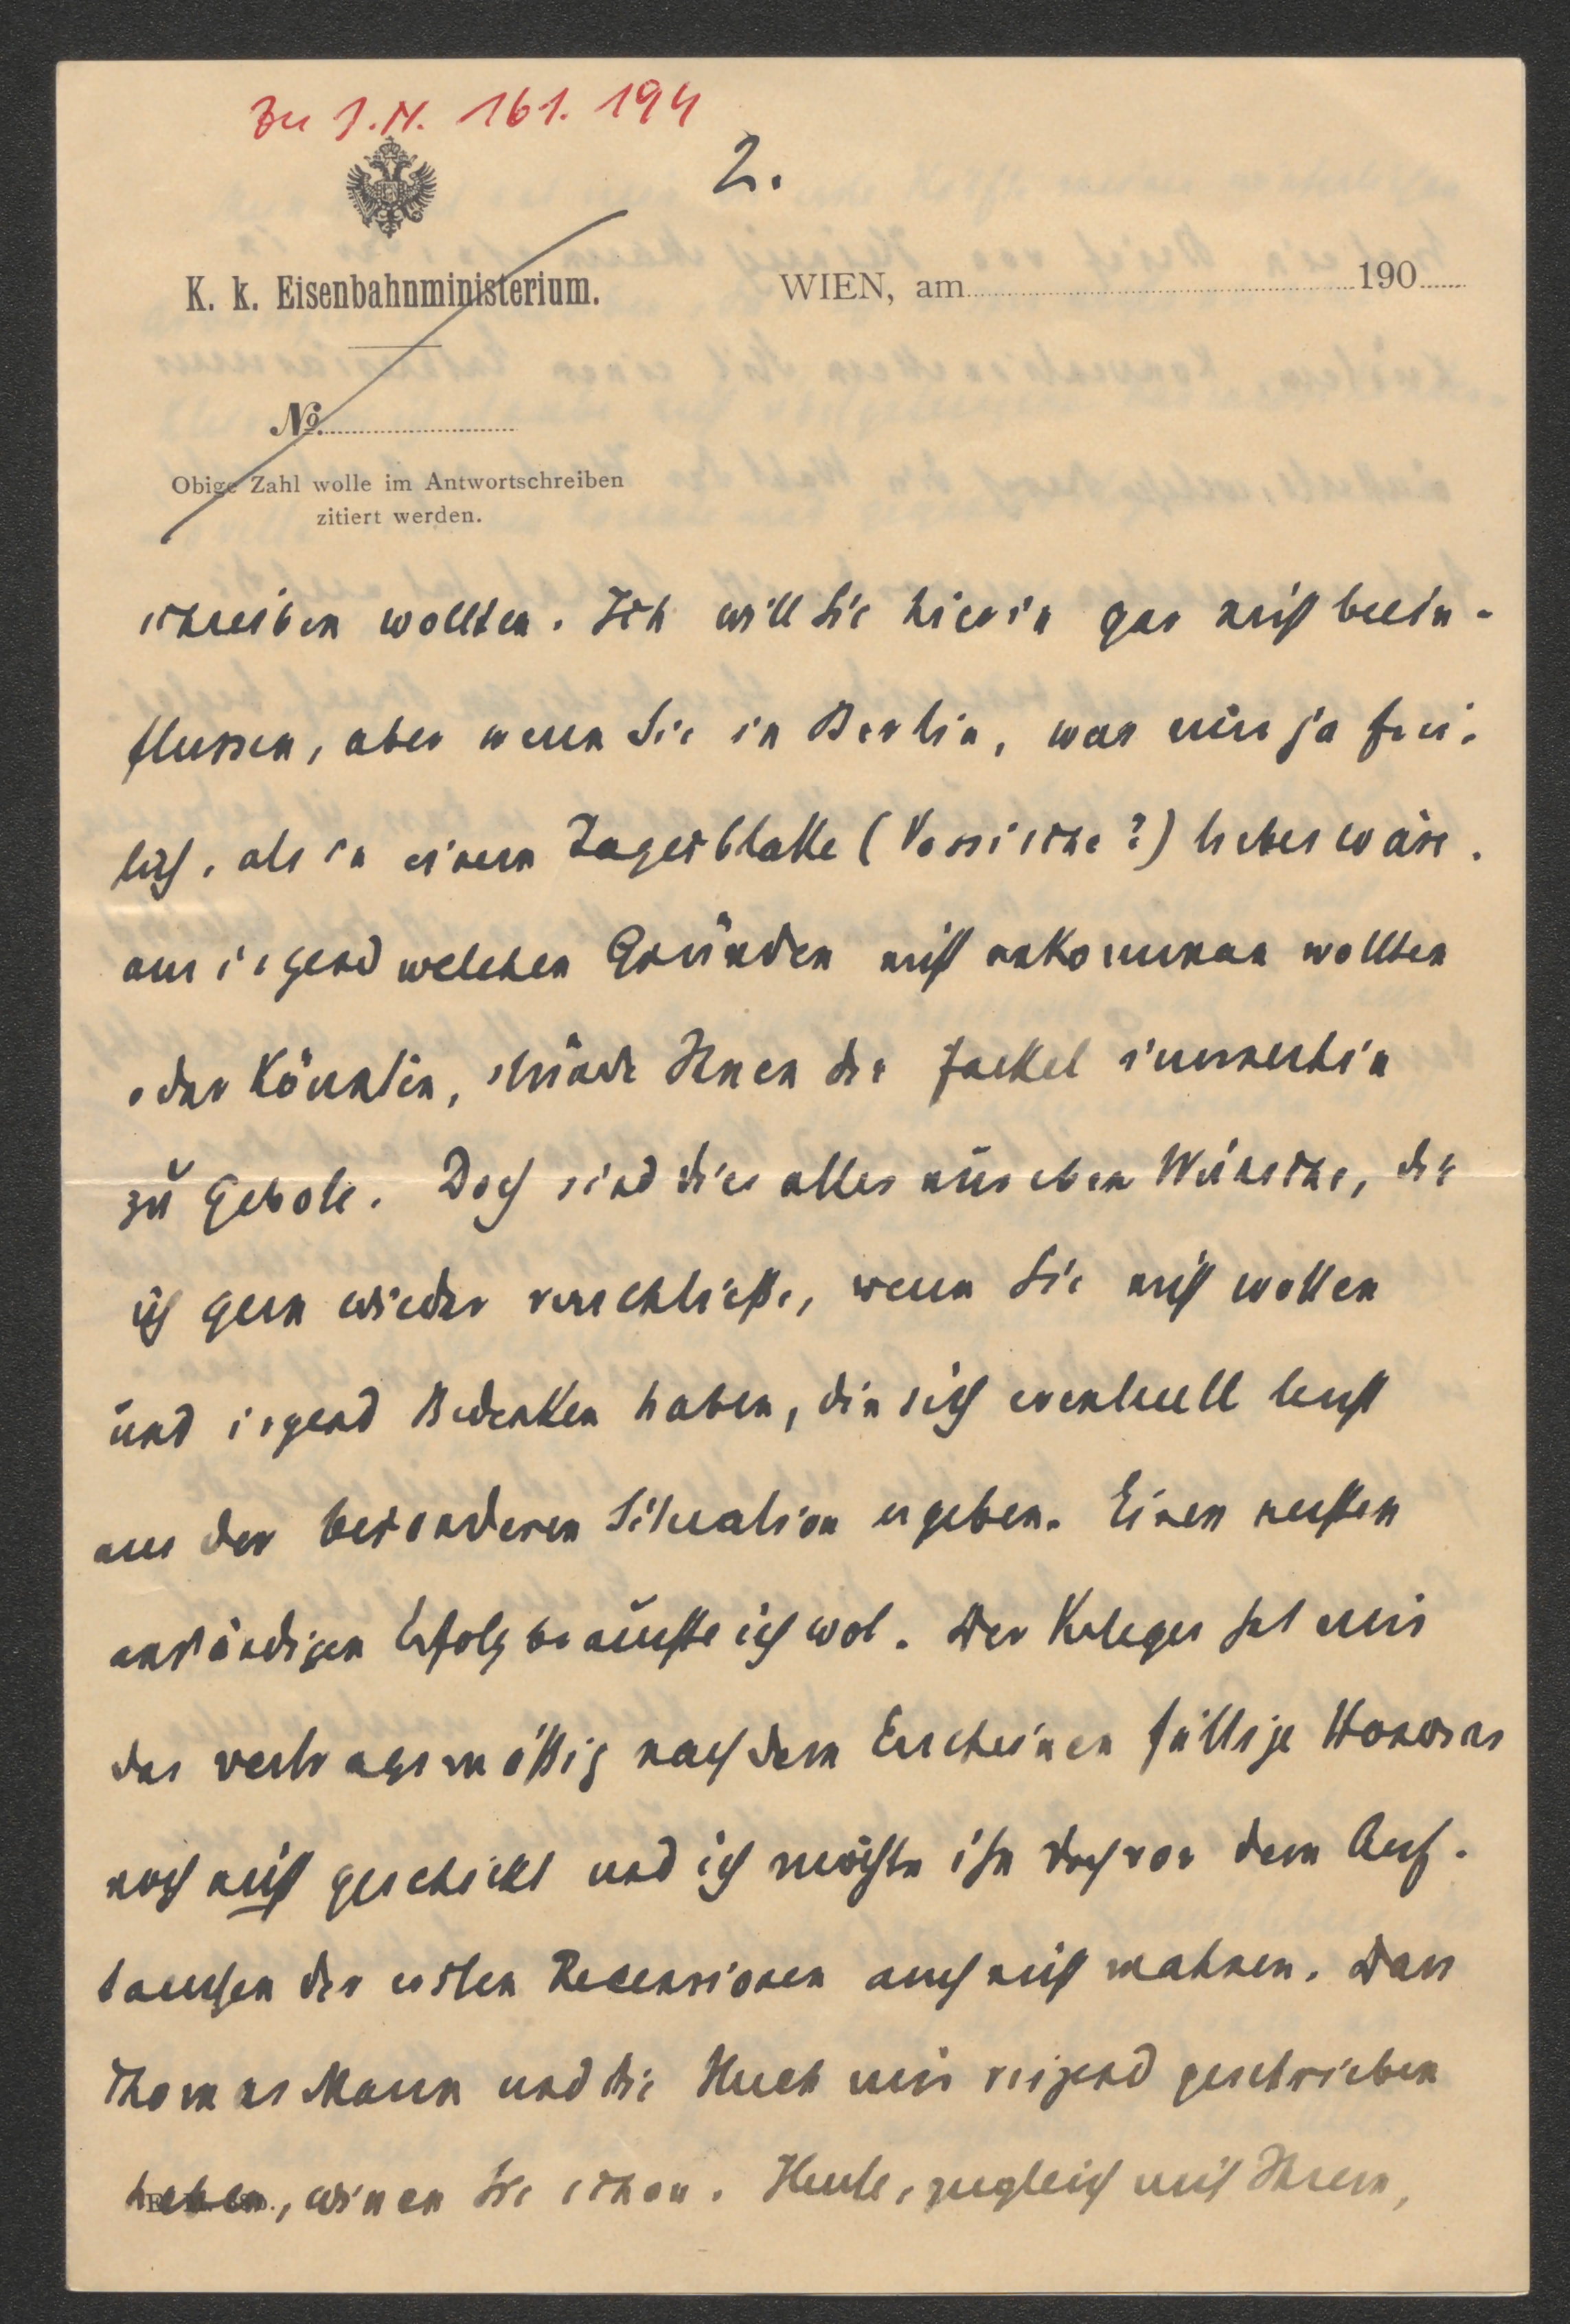 Zu J.N. 161.194
2.
K. k. Eisenbahnministerium.
WIEN, am 190
No.
Obige Zahl wolle im Antwortschreiben
zitiert werden.
schreiben wollten. Ich will Sie hierin gar nicht beein-
flussen, aber wenn Sie in Berlin, was mir ja frei-
lich, als in einem Tagesblatte (Vossische?) lieber wäre,
aus irgend welchen Gründen nicht ankommen wollten
oder könnten, stünde Ihnen die Fackel immerhin
zu Gebote. Doch sind dies alles nur eben Wünsche, die
ich gern wieder verschließe, wenn Sie nicht wollen
und irgend Bedenken haben, die sich eventuell leicht
aus der besonderen Situation ergeben. Einen rechten
anständigen Erfolg brauchte ich wol. Der Verleger hat mir
das vertragsmäßig nach dem Erscheinen fällige Honorar
noch nicht geschickt und ich möchte ihn doch vor dem Auf-
tauchen der ersten Recensionen auch nicht mahnen. Dass
Thomas Mann und die Huch mir reizend geschrieben
haben, wissen Sie schon. Heute, zugleich mit Ihrem,